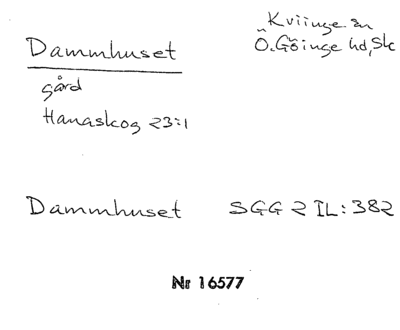 Dammhuset
Kviinge sn
Ö. Göinge hd, Sk
gård
Hanaskog 23:1
Dammhuset SGG 2 IL: 382
Nr 16577